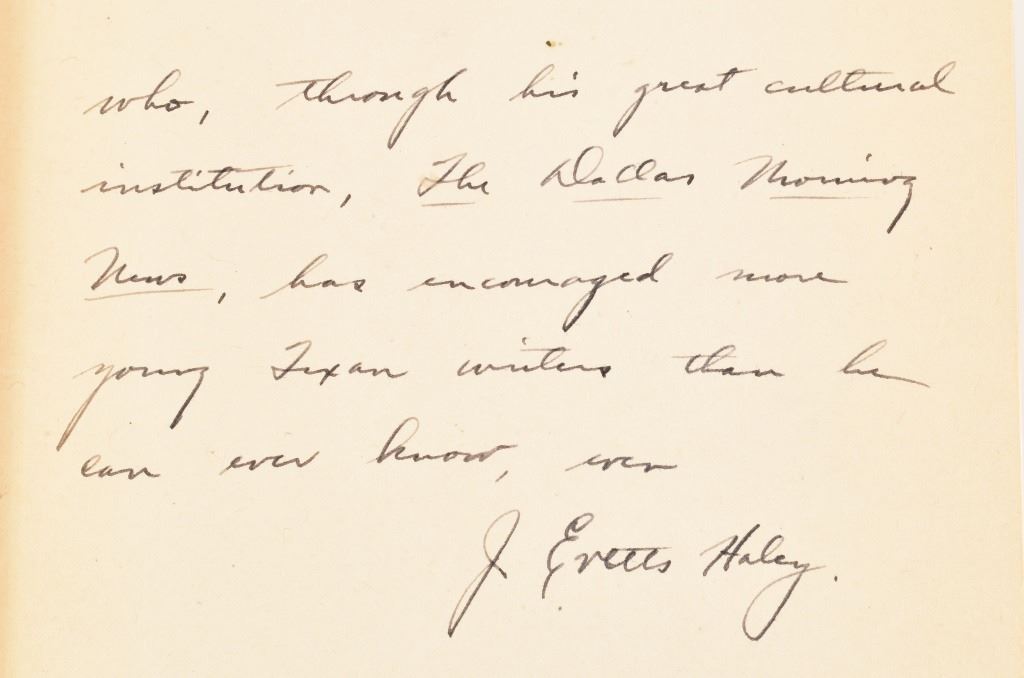 who, through his great cultural
institution, The Dallas Morning
News, has encouraged more
young Texan writers than he
can ever know, even
J. Evetts Haley.